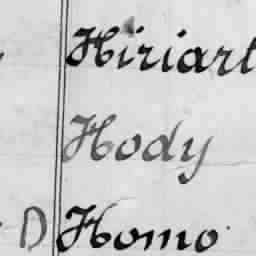 Hiriart
Hody
D Homo